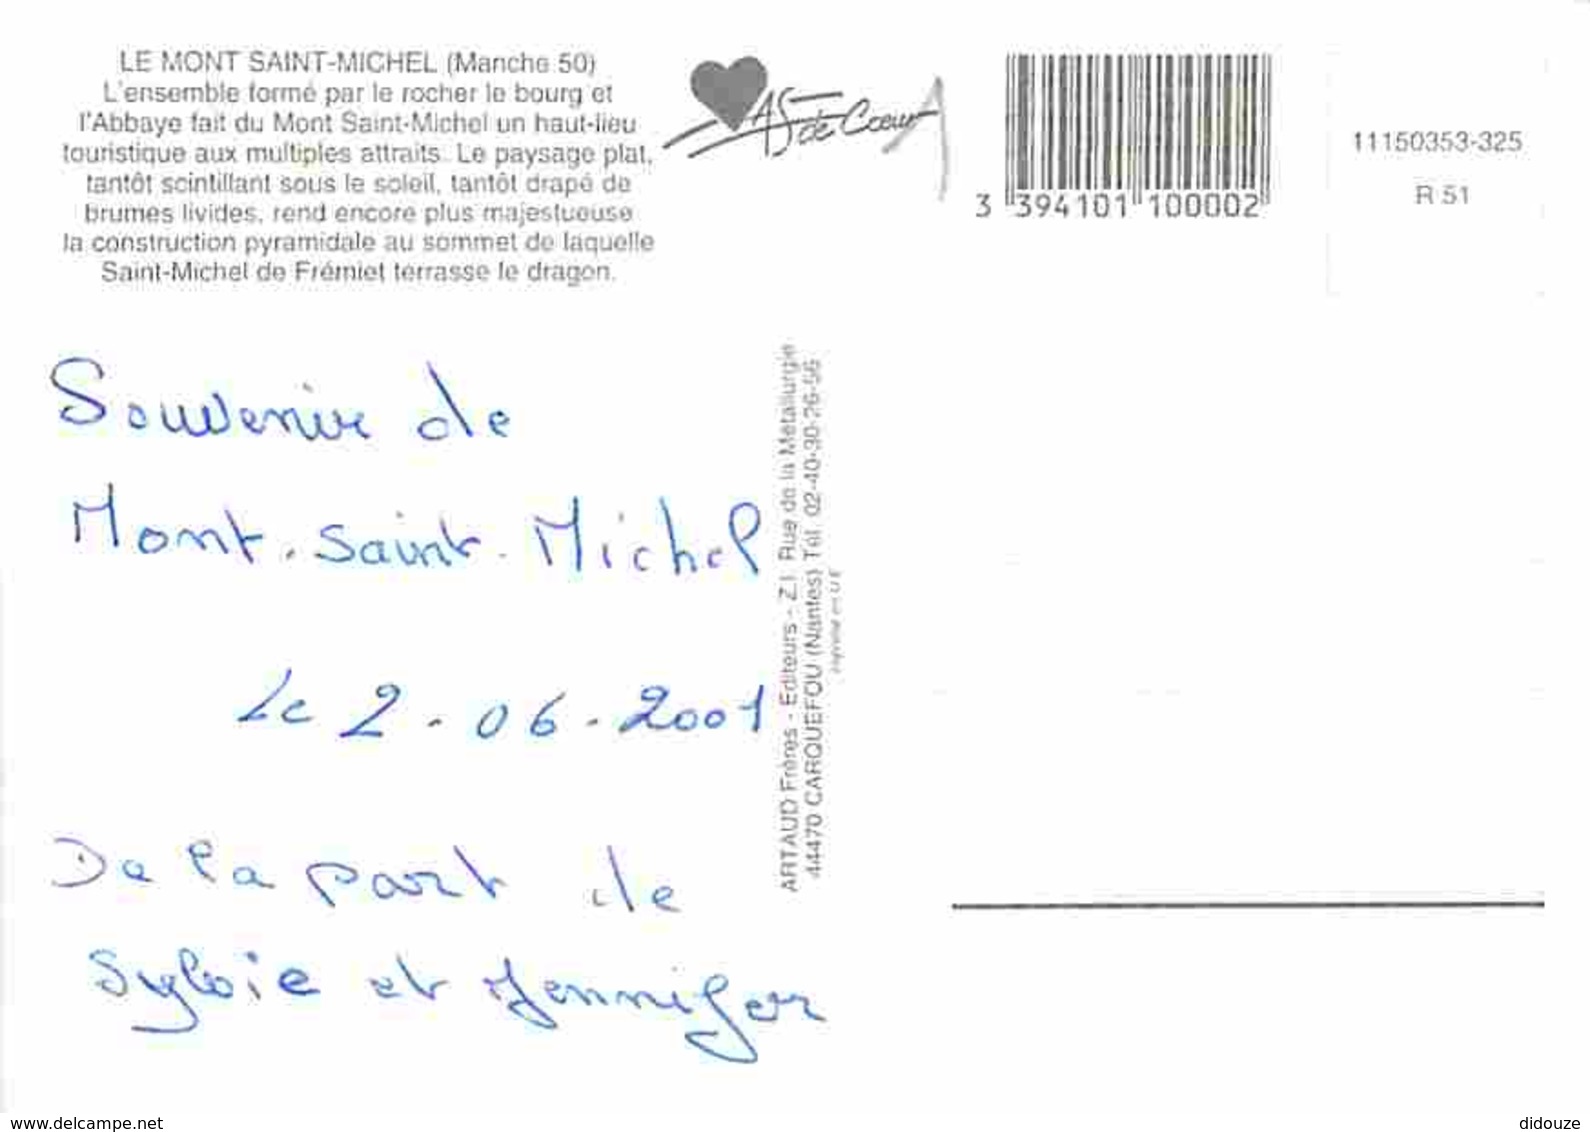 LE MONT SAINT-MICHEL (Manche 50)
L'ensemble formé par le rocher le bourg et
l'Abbaye fait du Mont Saint-Michel un haut-lieu
touristique aux multiples attraits. Le paysage plat,
tantôt scintillant sous le soleil, tantôt drapé de
brumes livides, rend encore plus majestueuse
la construction pyramidale au sommet de laquelle
Saint-Michel de Frémiet terrasse le dragon.
AS de Coeur
3 394101 100002
11150353-325
R 51
Souvenir de
Mont-Saint-Michel
Le 2-06-2001
De la part de
Sylvie et Jennifer
ARTAUD Frères - Editeurs - Z.I. Rue de la Métallurgie
44470 CARQUEFOU (Nantes) Tél. 02-40-30-26-56
Imprimé en U.E.
www.delcampe.net
didouze